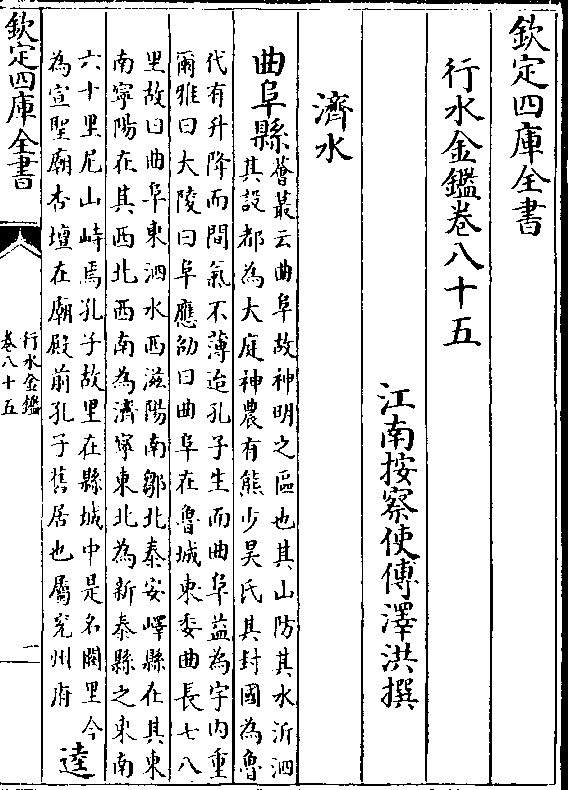 欽定四庫全書
行水金鑑卷八十五
江南按察使傅澤洪撰
濟水
曲阜縣薈叢云曲阜故神明之區也其山防其水沂泗
其設都為大庭神農有熊少昊氏其封國為魯
代有升降而間氣不薄迨孔子生而曲阜益為宇内重
爾雅曰大陵曰阜應劭曰曲阜在魯城東委曲長七八
里故曰曲阜東泗水西滋陽南鄒北泰安嶧縣在其東
南寧陽在其西北西南為濟寧東北為新泰縣之東南
六十里尼山峙焉孔子故里在縣城中是名闕里今
為宣聖廟杏壇在廟殿前孔子舊居也屬兖州府
逵
欽定四庫全書
行水金鑑
卷八十五
一